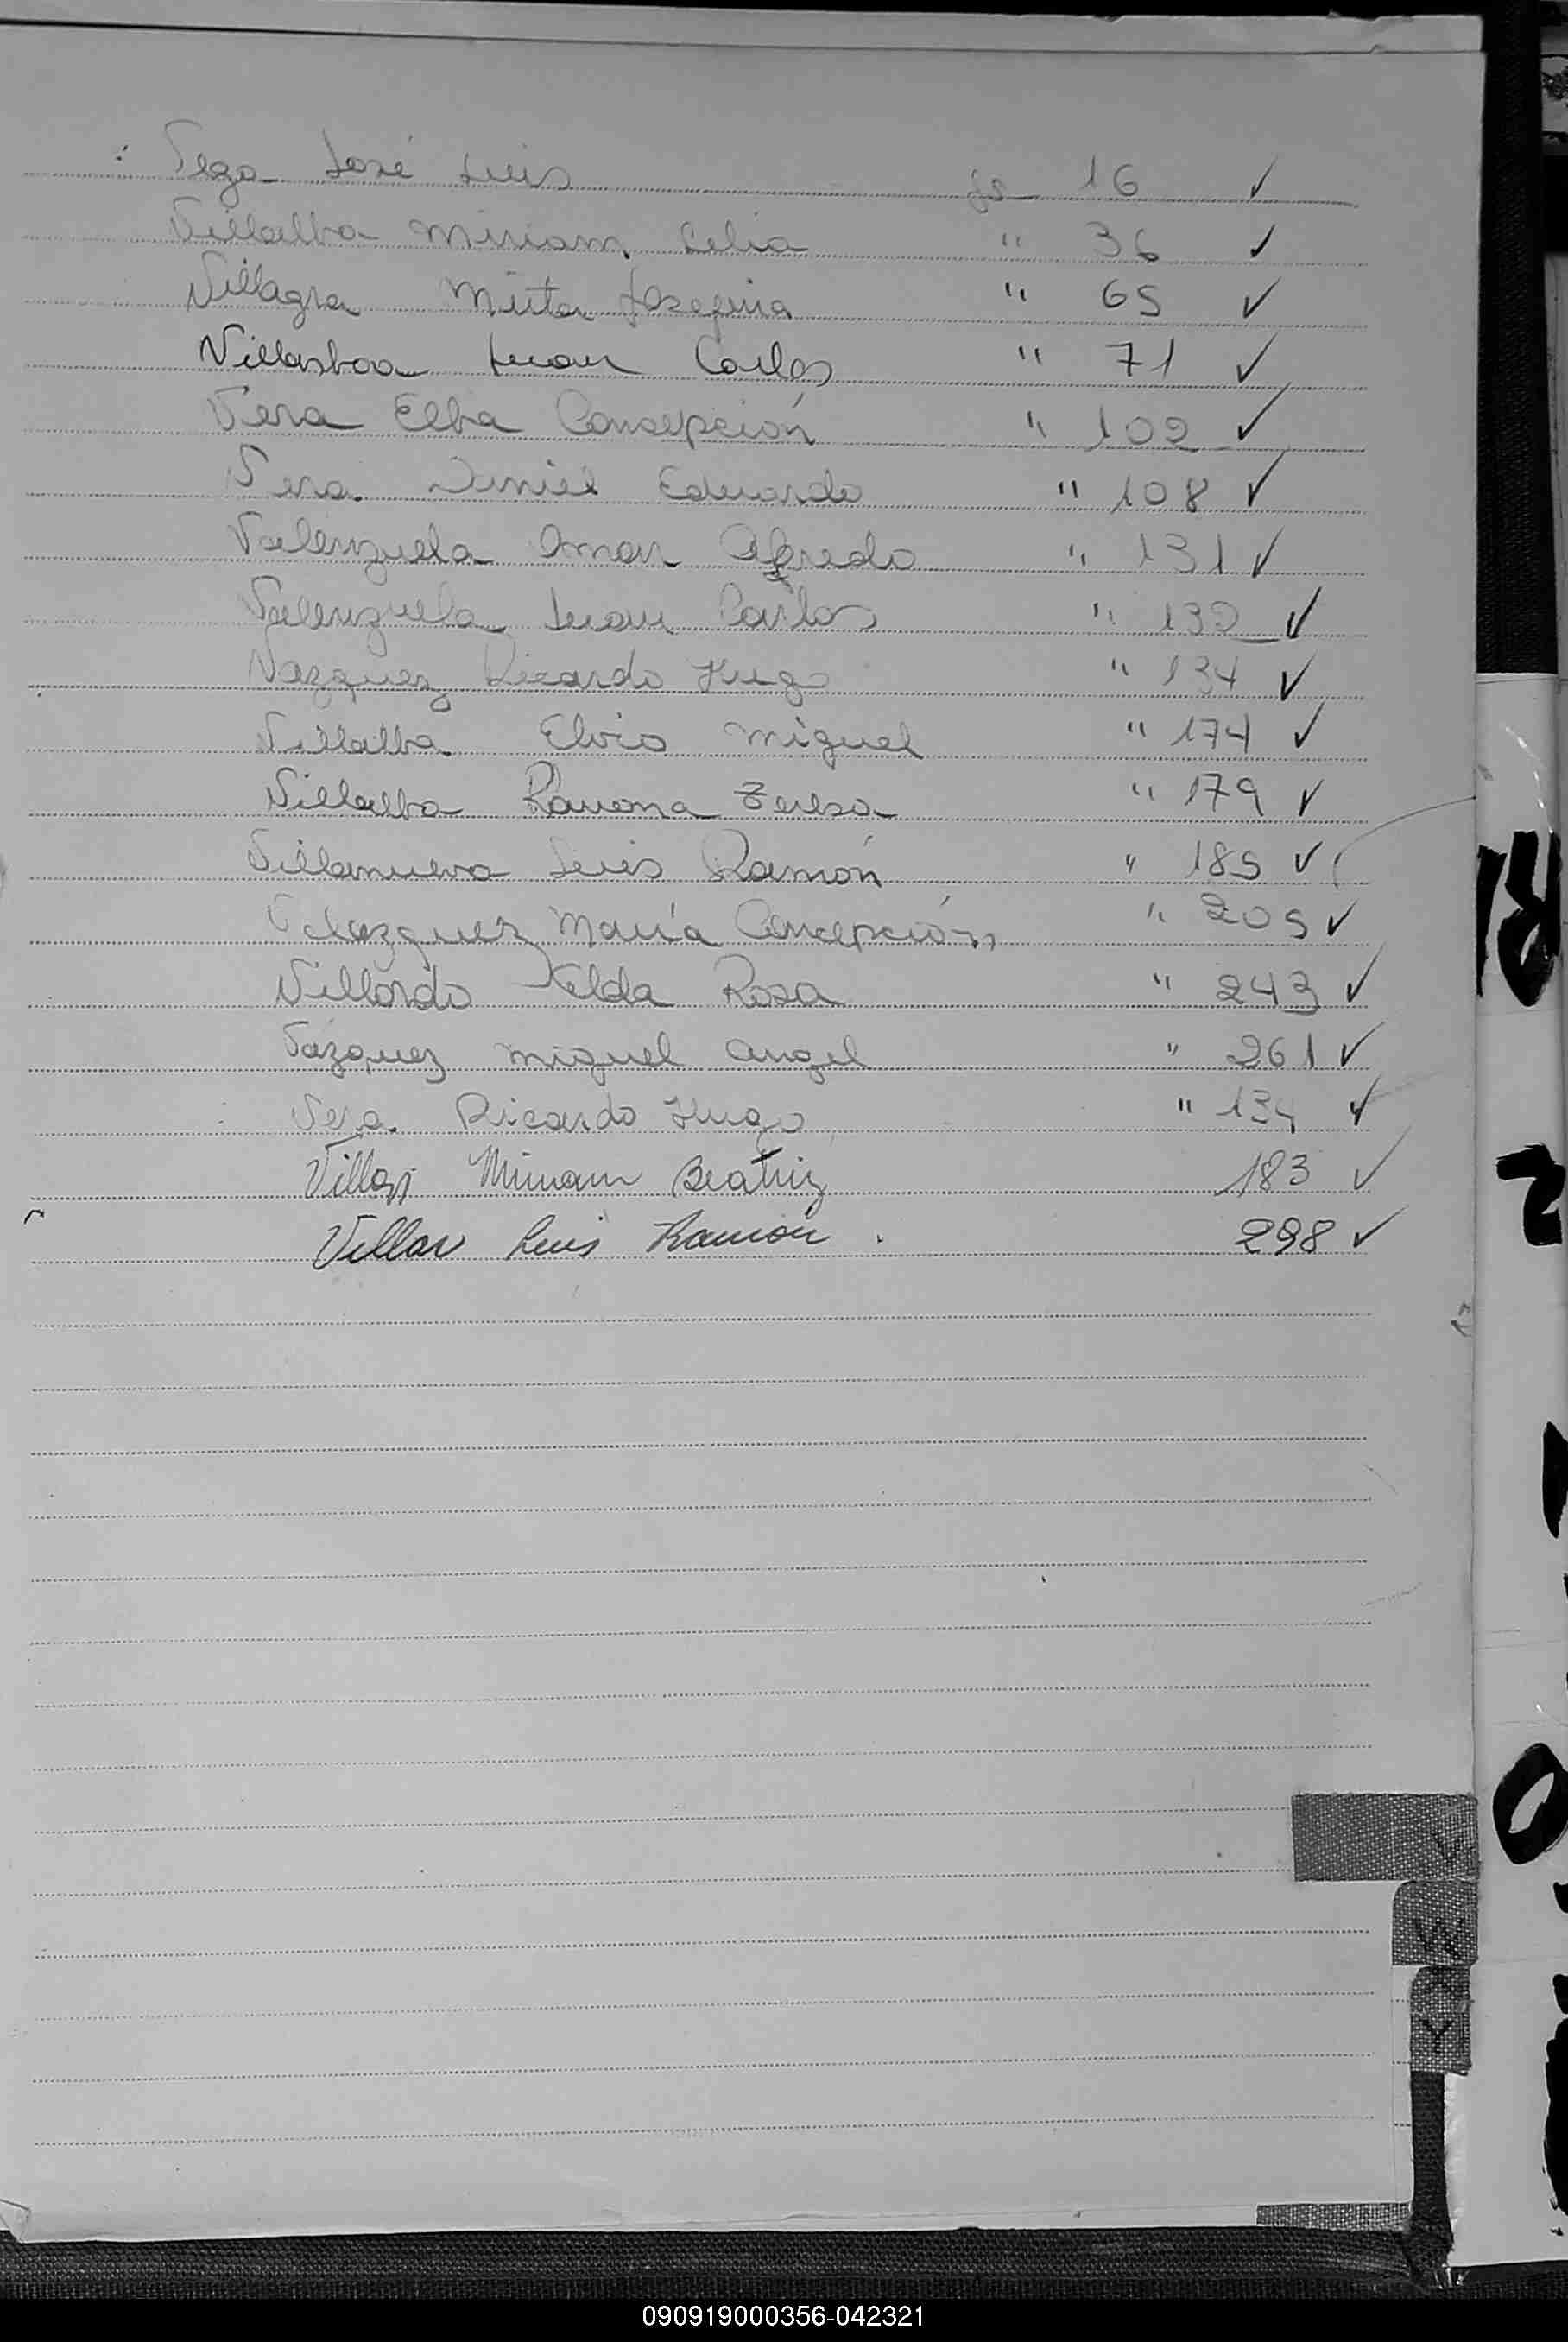 Vega José Luis fs 16 ✓
Villalba Miriam Celia " 36 ✓
Villagra Mirta Josefina " 65 ✓
Villasboa Juan Carlos " 71 ✓
Vera Elba Concepción " 102 ✓
Vera Daniel Eduardo " 108 ✓
Valenzuela Omar Alfredo " 131 ✓
Valenzuela Juan Carlos " 132 ✓
Vazquez Ricardo Hugo " 134 ✓
Villalba Elvio Miguel " 174 ✓
Villalba Ramona Teresa " 179 ✓
Villanueva Luis Ramón " 185 ✓
Velazquez María Concepción " 205 ✓
Villordo Elda Rosa " 243 ✓
Vázquez Miguel Angel " 261 ✓
Vera Ricardo Hugo " 134 ✓
Miriam Beatriz 183 ✓
Villar Luis Ramon . 298 ✓
V
W
Y
090919000356-042321